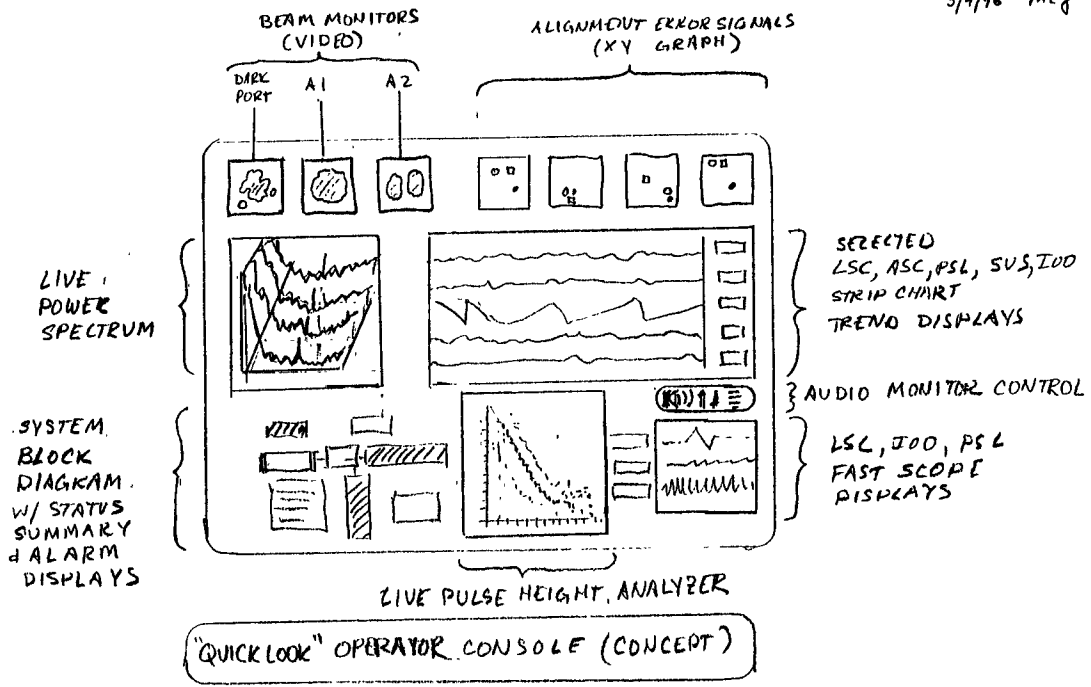 BEAM MONITORS
(VIDEO)
DARK
PORT
A1
A2
ALIGNMENT ERROR SIGNALS
(XY GRAPH)
LIVE
POWER
SPECTRUM
SELECTED
LSC, ASC, PSL, SUS, IOO
STRIP CHART
TREND DISPLAYS
AUDIO MONITOR CONTROL
SYSTEM
BLOCK
DIAGRAM
W/ STATUS
SUMMARY
& ALARM
DISPLAYS
LSC, IOO, PSL
FAST SCOPE
DISPLAYS
LIVE PULSE HEIGHT ANALYZER
"QUICKLOOK" OPERATOR CONSOLE (CONCEPT)